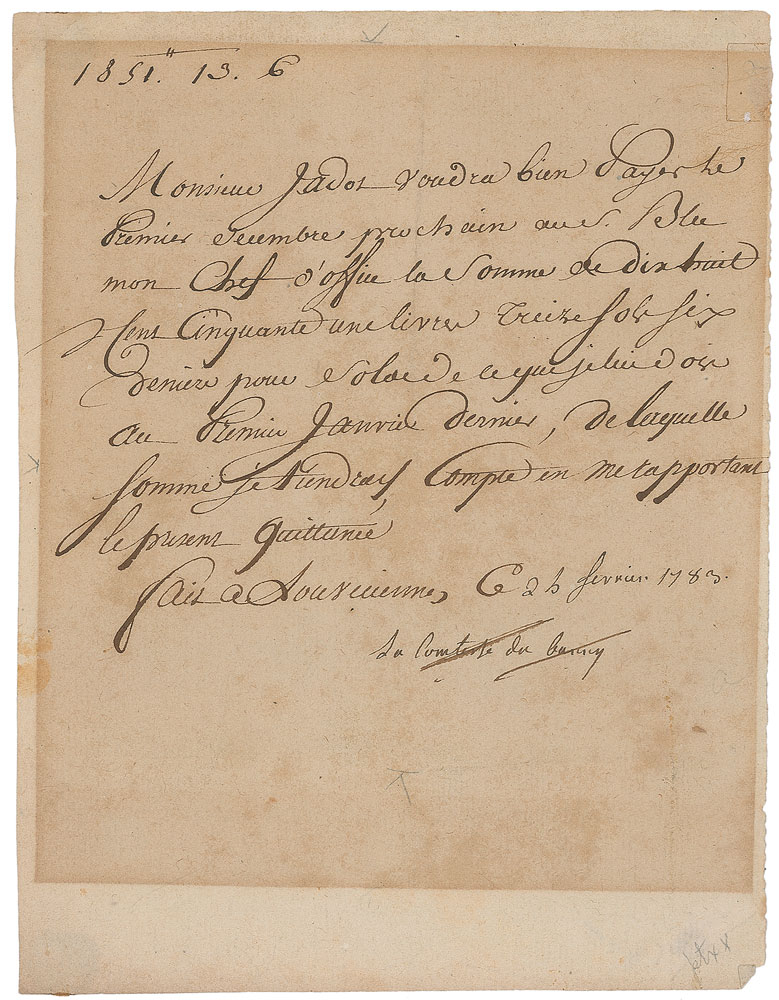 1851.'' 13. 6
Monsieur Jadot voudra bien Payer le
Premier Decembre prochain au S. Blee
mon Chef d'office la Somme de dix huit
Cent Cinquante une livres Treize Sols Six
Deniers pour Solde de ce que je lui dois
au Premier Janvier Dernier, de laquelle
Somme je tiendray Compte en me rapportant
le present quittancé
fait a Louvecienne, Ce 25 fevrier 1783.
La Comtesse du barry